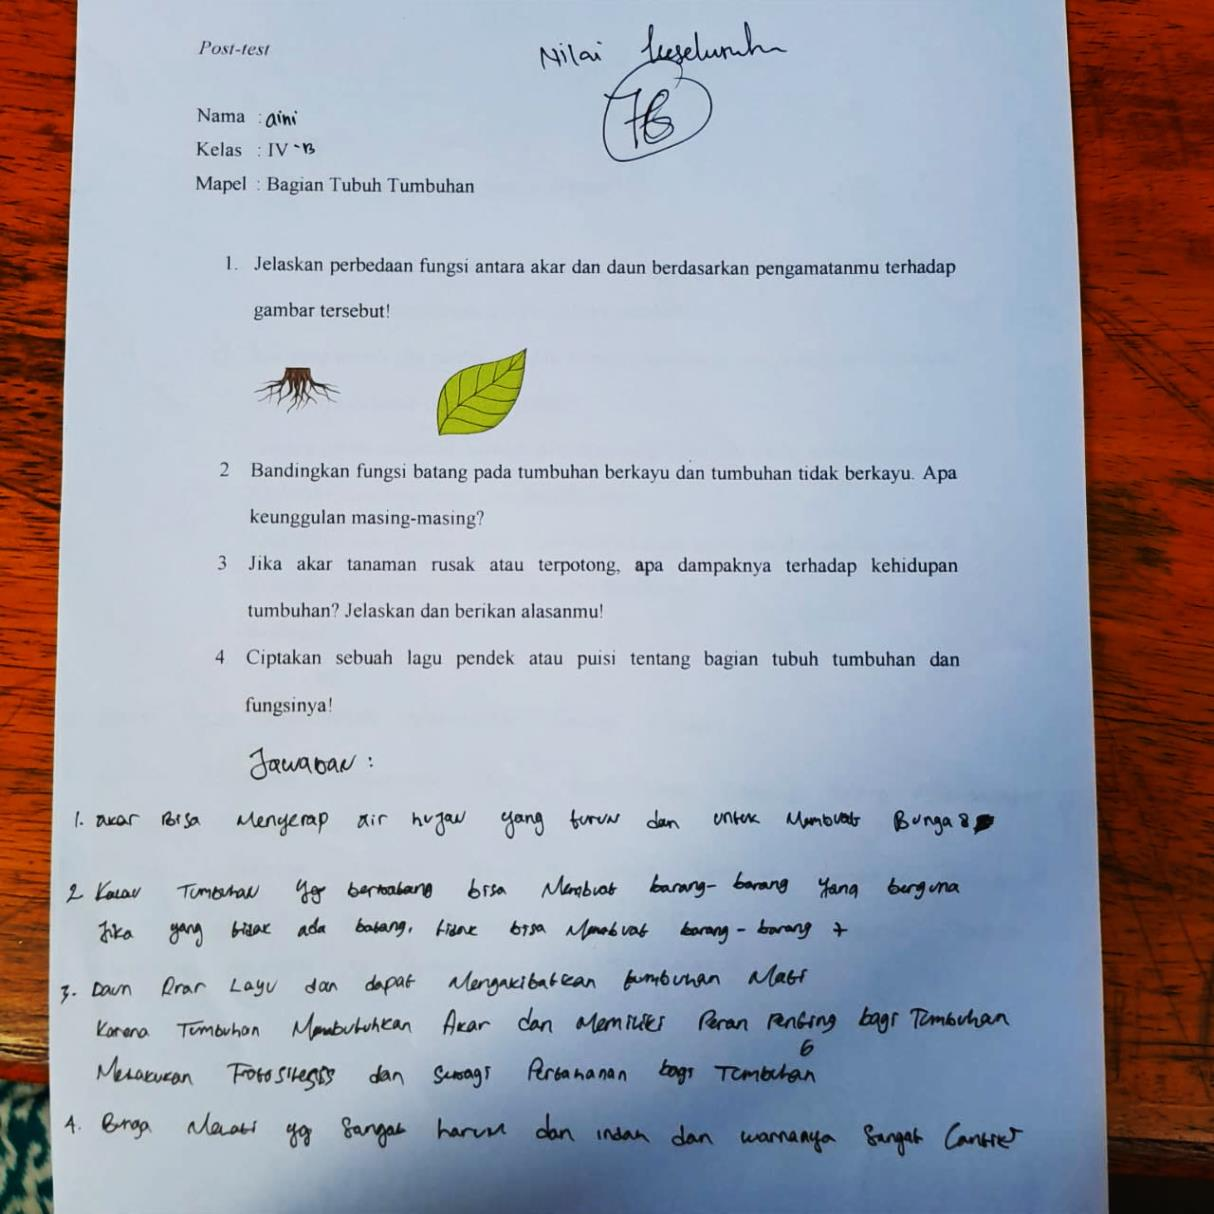 Post-test
Nilai keseluruhan
78
Nama : aini
Kelas : IV-B
Mapel : Bagian Tubuh Tumbuhan
1. Jelaskan perbedaan fungsi antara akar dan daun berdasarkan pengamatanmu terhadap
gambar tersebut!
2 Bandingkan fungsi batang pada tumbuhan berkayu dan tumbuhan tidak berkayu. Apa
keunggulan masing-masing?
3 Jika akar tanaman rusak atau terpotong, apa dampaknya terhadap kehidupan
tumbuhan? Jelaskan dan berikan alasanmu!
4 Ciptakan sebuah lagu pendek atau puisi tentang bagian tubuh tumbuhan dan
fungsinya!
Jawaban :
1. akar Bisa Menyerap air hujan yang turun dan untuk Membuat Bunga 8
2. Kalau Tumbuhan yg berbatang bisa Membuat barang-barang yang berguna
Jika yang tidak ada batang, tidak bisa Membuat barang-barang 7
3. Daun Layu dan dapat Mengakibatkan tumbuhan Mati
Karena Tumbuhan Membutuhkan Akar dan Memiliki Peran Penting bagi Tumbuhan
Melakukan dan Pertahanan bagi Tumbuhan 6
4. Bunga Melati yg Sangat harum dan indah dan warnanya Sangat Cantik